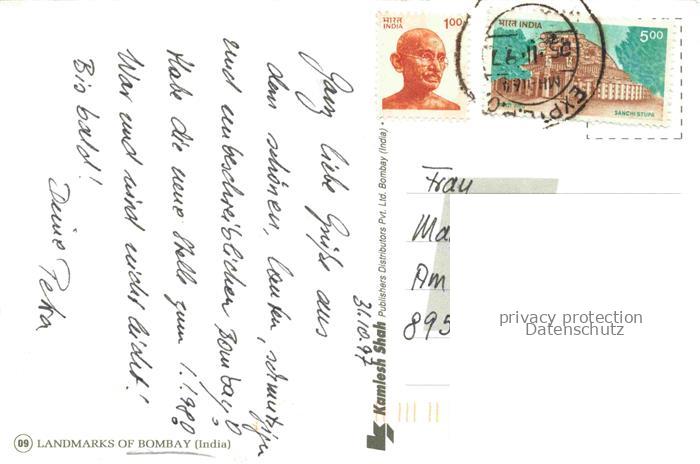 Ganz liebe Grüße aus
dem schönen, lauten, schmutzigen
und unbeschreiblichen Bombay!
Habe die neue Stelle zum 1.1.98!
War und wird nicht leicht!
Bis bald!
Deine Petra
31.10.97
09 LANDMARKS OF BOMBAY (India)
Kamlesh Shah Publishers Distributors Pvt. Ltd. Bombay (India).
भारत
INDIA
1.00
भारत INDIA
5.00
SANCHI STUPA
Frau
Ma
Am
895
privacy protection
Datenschutz